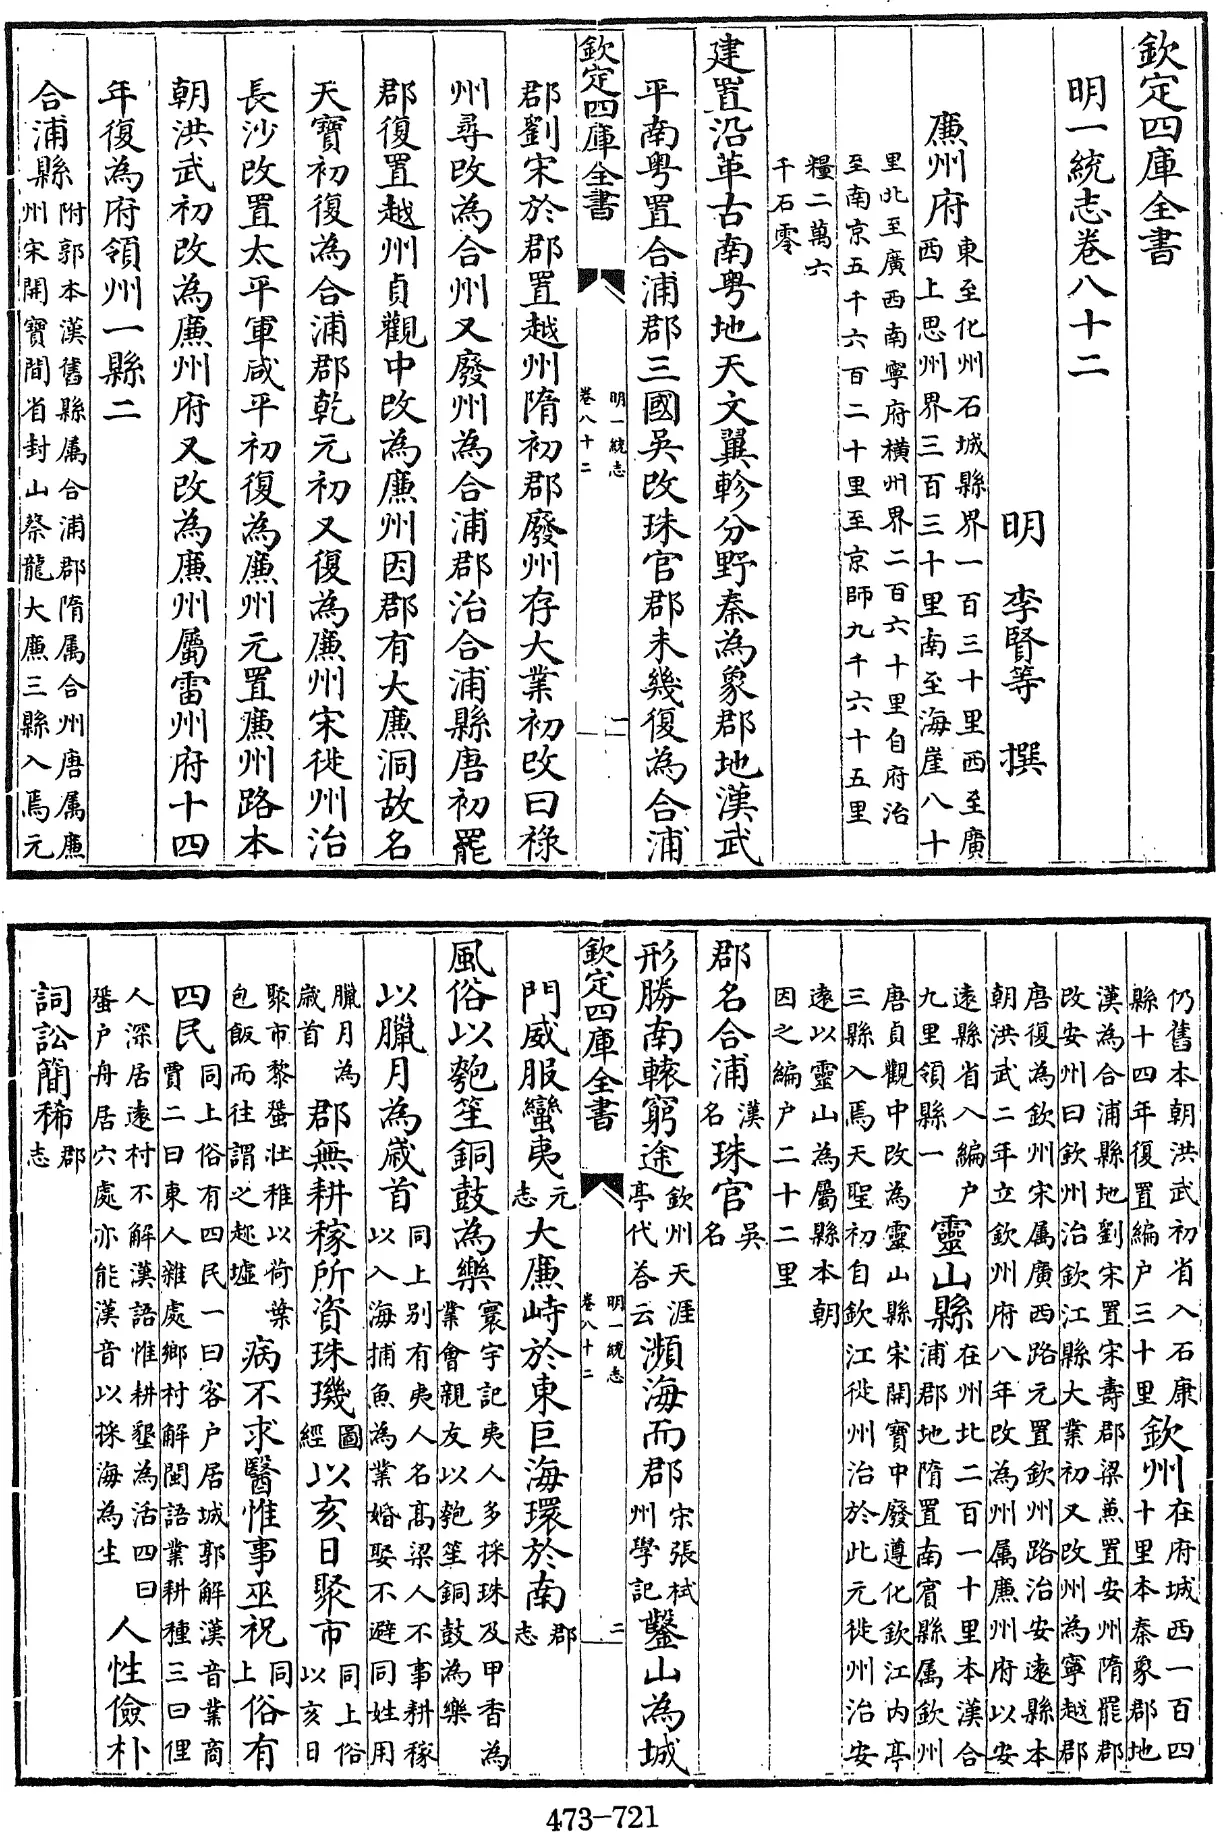 欽定四庫全書
明一統志卷八十二
明 李賢等 撰
廉州府東至化州石城縣界一百三十里西至廣
西上思州界三百三十里南至海崖八十
里北至廣西南寧府橫州界二百六十里自府治
至南京五千六百二十里至京師九千六十五里
糧二萬六
千石零
建置沿革古南粵地天文翼軫分野秦為象郡地漢武
平南粵置合浦郡三國吳改珠官郡未幾復為合浦
欽定四庫全書
明一統志
卷八十二
一
郡劉宋於郡置越州隋初郡廢州存大業初改曰祿
州尋改為合州又廢州為合浦郡治合浦縣唐初罷
郡復置越州貞觀中改為廉州因郡有大廉洞故名
天寶初復為合浦郡乾元初又復為廉州宋徙州治
長沙改置太平軍咸平初復為廉州元置廉州路本
朝洪武初改為廉州府又改為廉州屬雷州府十四
年復為府領州一縣二
合浦縣附郭本漢舊縣属合浦郡隋属合州唐属廉
州宋開寶間省封山蔡龍大廉三縣入焉元
仍舊本朝洪武初省入石康
縣十四年復置編户三十里
欽州在府城西一百四
十里本秦象郡地
漢為合浦縣地劉宋置宋壽郡梁兼置安州隋罷郡
改安州曰欽州治欽江縣大業初又改州為寧越郡
唐復為欽州宋属廣西路元置欽州路治安遠縣本
朝洪武二年立欽州府八年改為州属廉州府以安
遠縣省入編户
九里領縣一
靈山縣在州北二百一十里本漢合
浦郡地隋置南賓縣属欽州
唐貞觀中改為靈山縣宋開寶中廢遵化欽江内亭
三縣入焉天聖初自欽江徙州治於此元徙州治安
遠以靈山為屬縣本朝
因之編户二十二里
郡名合浦漢名珠官吳名
形勝南轅窮途欽州天涯亭代答云瀕海而郡宋張栻州學記鑿山為城
欽定四庫全書
明一統志
卷八十二
二
門威服蠻夷元志大廉峙於東巨海環於南郡志
風俗以匏笙銅鼓為樂寰宇記夷人多採珠及甲香為
業會親友以匏笙銅鼓為樂
以臘月為歲首同上别有夷人名高梁人不事耕稼
以入海捕魚為業婚娶不避同姓用
臘月為
歲首
郡無耕稼所資珠璣圖經以亥日聚市同上俗以亥日
聚市黎蜑壯稚以荷葉
包飯而往謂之趂墟
病不求醫惟事巫祝同上俗有
四民同上俗有四民一曰客户居城郭解漢音業商
賈二曰東人雜處鄉村解閩語業耕種三曰俚
人深居遠村不解漢語惟耕墾為活四曰
蜑户舟居穴處亦能漢音以採海為生
人性儉朴
詞訟簡稀郡志
473-721